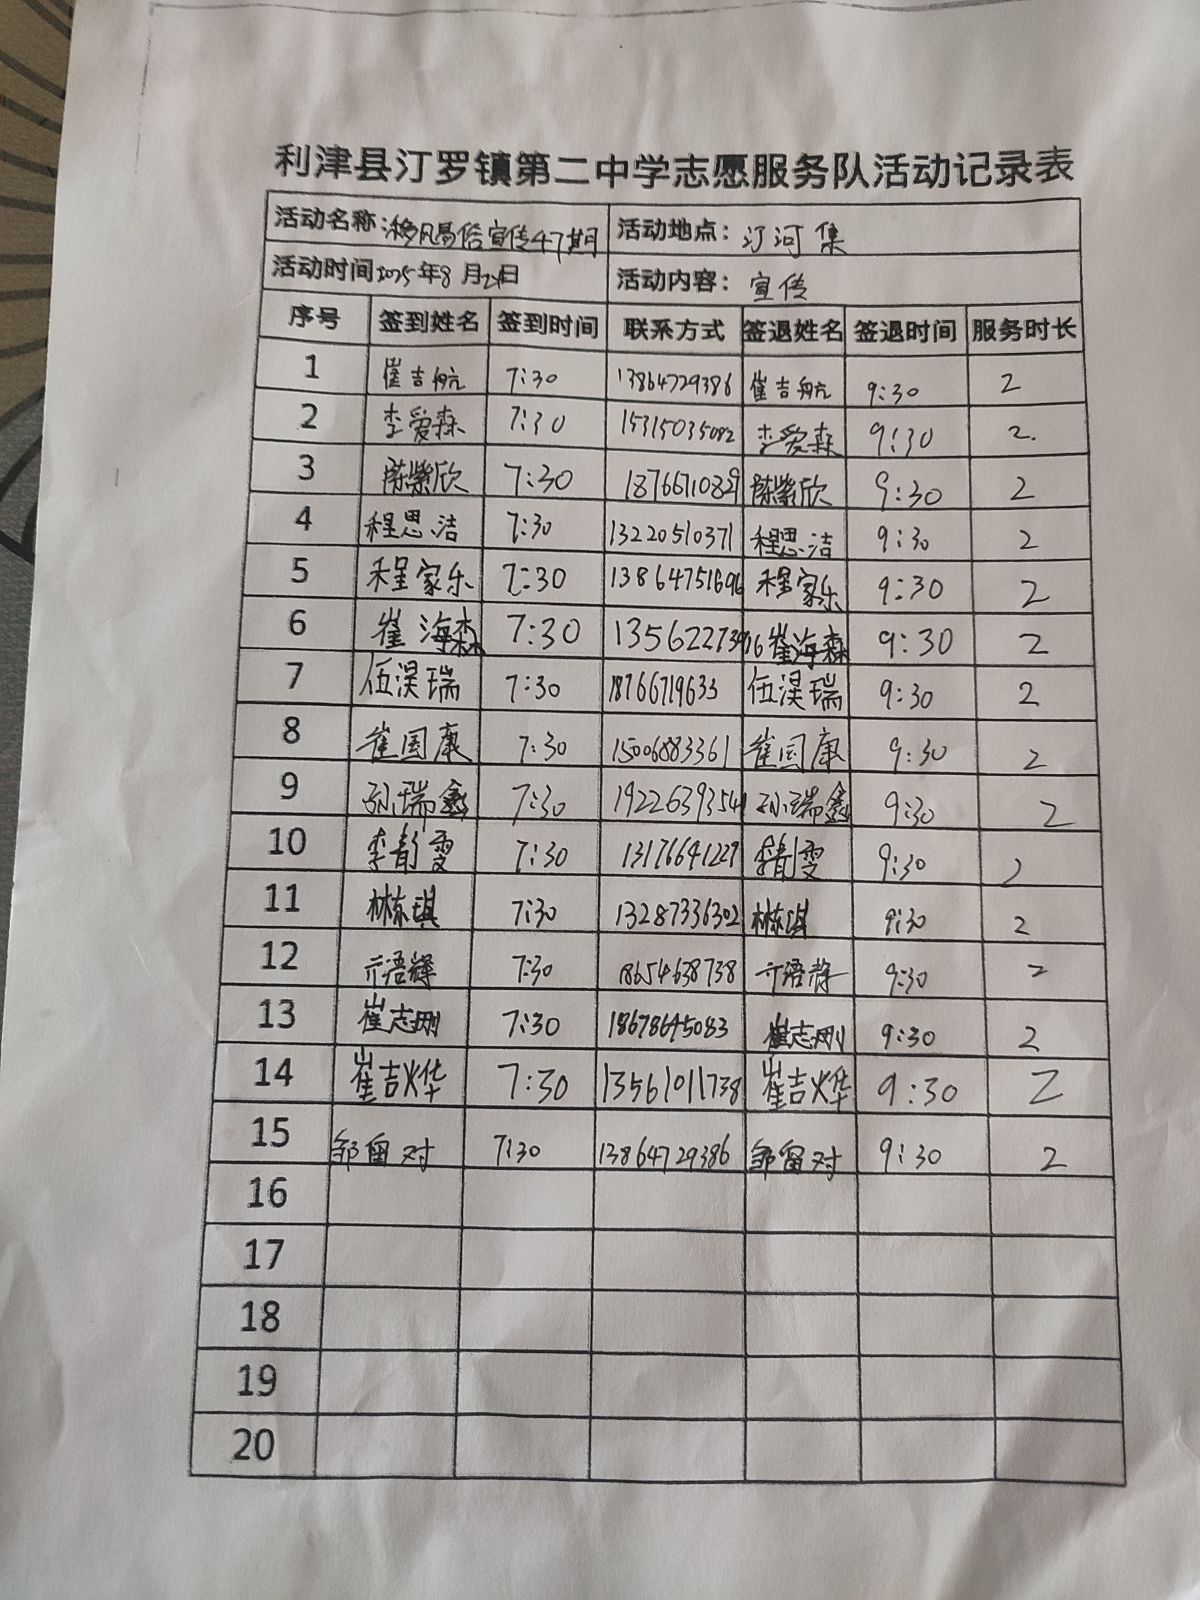 利津县汀罗镇第二中学志愿服务队活动记录表
活动名称 移风易俗宣传47期 活动地点：汀河集
活动时间2025年8月2日 活动内容：宣传
序号 签到姓名 签到时间 联系方式 签退姓名 签退时间 服务时长
1 崔吉航 7:30 13864729386 崔吉航 9:30 2
2 李爱森 7:30 15315035082 李爱森 9:30 2.
3 陈紫欣 7:30 1876671082 陈紫欣 9:30 2
4 程思洁 7:30 13220510371 程思洁 9:30 2
5 程家乐 7:30 13864751696 程家乐 9:30 2
6 崔海森 7:30 13562273916 崔海森 9:30 2
7 伍淏瑞 7:30 18766719633 伍淏瑞 9:30 2
8 崔国康 7:30 15006883361 崔国康 9:30 2
9 孙瑞鑫 7:30 19226393541 孙瑞鑫 9:30 2
10 李静雯 7:30 13176641229 李静雯 9:30 2
11 林栋琪 7:30 13287336302 林栋琪 9:30 2
12 亓语辉 7:30 18654638738 亓语辉 9:30 2
13 崔志刚 7:30 18678645083 崔志刚 9:30 2
14 崔吉烨 7:30 13561011738 崔吉烨 9:30 2
15 邹留对 7:30 13864729386 邹留对 9:30 2
16
17
18
19
20